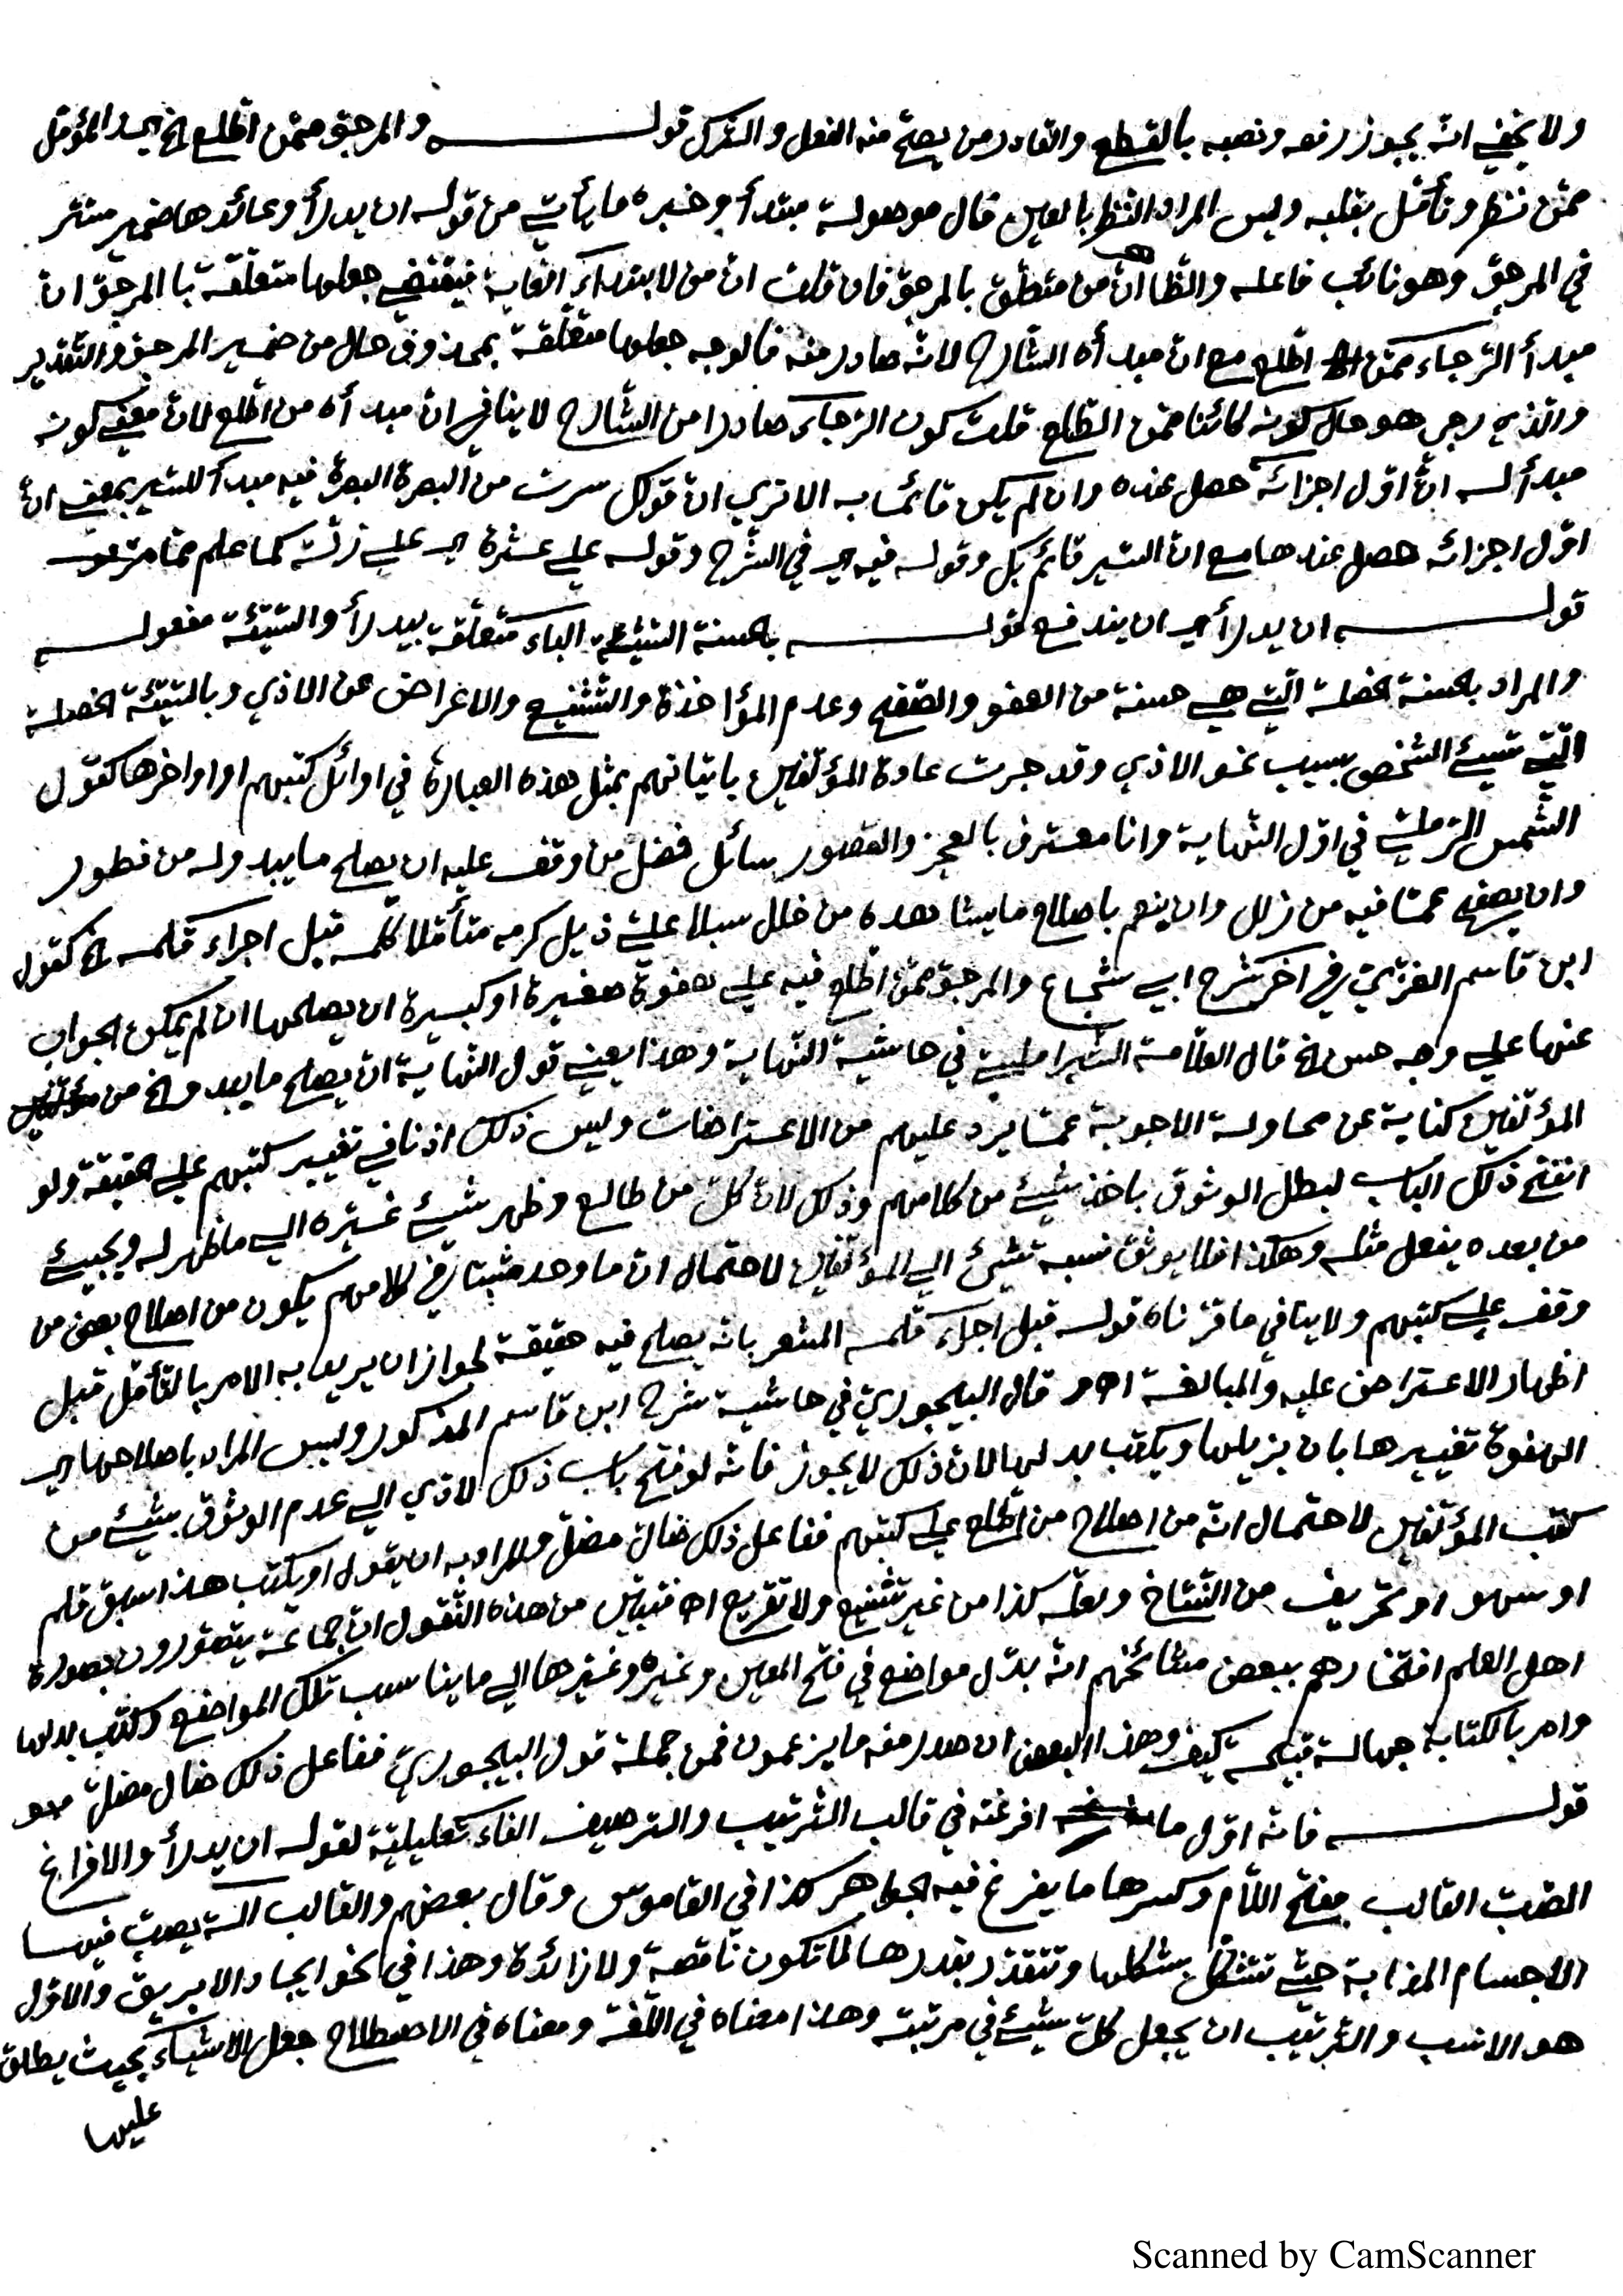 ولا يخفى انه يجوز رفعه ونصبه بالقطع والقادر من يصح منه الفعل والترك قولـــه والمرجو ممن اطلع الخ اي المؤمل
ممن نظر وتأمل بقلبه وليس المراد النظر بالعين فال موصولة مبتدأ وخبره ما يأتي من قوله ان يدرأ وعائدها ضمير مستتر
في المرجو وهو نائب فاعله والظاهر ان من متعلق بالمرجو فان قلت ان من لابتداء الغاية فيقتضي جعلها متعلقة بالمرجو ان
مبدأ الرجاء ممن اطلع مع ان مبدأه الشارح لانه صادر منه فالوجه جعلها متعلقة بمحذوف حال من ضمير المرجو والتقدير
والذي رجى هو حال كونه كائنا ممن اطلع قلت كون الرجاء صادرا من الشارح لا ينافي ان مبدأه من اطلع لان معنى كونه
مبدأ له ان اول اجزائه حصل عنده وان لم يكن قائما به الا ترى ان قولك سرت من البصرة البصرة فيه مبدأ للسير بمعنى ان
اول اجزائه حصل عندها مع ان السير قائم بك وقوله فيه اي في الشرح وقوله على عثرة اي على زلة كما علم مما مر
قولـــه ان يدرأ اي ان يندفع قولـــه بالحسنة السيئة الباء متعلقة بيدرأ والسيئة مفعولـــه
والمراد بالحسنة الخصلة التي هي حسنة من العفو والصفح وعدم المؤاخذة والتشنيع والاغراض عن الاذي وبالسيئة الخصلة
التي تسيئ الشخص بسبب نحو الاذي وقد جرت عادة المؤلفين باتيانهم بمثل هذه العبارة في اوائل كتبهم او اواخرها كقول
الشمس الرملي في اول النهاية وانا معترف بالعجز والقصور سائل فضل من وقف عليه ان يصلح ما يبدو له من فطور
وان يصفح عما فيه من زلل وان ينعم باصلاح ما يشاهده من خلل سبلا على ذيل كرمه متأملا كلمه قبل اجراء قلمه الخ كقول
ابن قاسم الغزي في اخر شرح ابي شجاع والمرجو ممن اطلع فيه على هفوة صغيرة او كبيرة ان يصلحها ان لم يمكن الجواب
عنها على وجه حسن الخ قال العلامة الشبراملسي في حاشية النهاية وهذا يعني قول النهاية ان يصلح ما يبدو الخ من
المؤلفين كناية عن محاولة الاجوبة عما يرد عليهم من الاعتراضات وليس ذلك اذنا في تغيير كتبهم على حقيقة ولو
انفتح ذلك الباب لبطل الوثوق باخذ شيئ من كلامهم وذلك لان كل من طالع وظهر شيئ غيره الى ما ظهر له ويجيئ
من بعده يفعل مثله وهكذا فلا يوثق نسبة شيئ الى المؤلفين لاحتمال ان ما وجد مثبتا في كلامهم يكون من اصلاح بعض من
وقف على كتبهم ولا ينافي ما قررناه قوله قبل اجراء قلمه المشعر بانه يصلح فيه حقيقة لجواز ان يريد به الامر بالتأمل قبل
اظهار الاعتراض عليه والمبالغة اه و قال البيجوري في حاشية شرح ابن قاسم المذكور وليس المراد باصلاحها اي
الهفوة تغييرها بان يزيلها ويكتب بدلها لان ذلك لا يجوز فانه لو فتح باب ذلك لادي الى عدم الوثوق بشيئ من
كتب المؤلفين لاحتمال انه من اصلاح من اطلع على كتبهم ففاعل ذلك ضال مضل والمراد به ان يقول او يكتب هذا سبق قلم
او سهو او تحريف من النساخ ولعله كذا من غير تشنيع ولا تقريع اه فتبين من هذه النقول ان جماعة يتصورون بصورة
اهل العلم افتخارهم ببعض مشائخهم انه بدل مواضع في فتح المعين وغيره وغيرها الى ما يناسب تلك المواضع وكتب بدلها
وامر بالكتابة جهالة قبيحة كيف وهذا البعض ان صدر منه ما يزعمون فمن جملة قول البيجوري ففاعل ذلك ضال مضل
قولـــه فانه اول ما افرغته في قالب الترتيب والترصيف الفاء تعليلية لقوله ان يدرأ والافراغ
الصب القالب بفتح اللام وكسرها ما يفرغ فيه الجواهر كذا في القاموس وقال بعضهم والقالب الة يصب فيها
الاجسام المذابة حتى تتشكل بشكلها وتتقدر بقدرها لا تكون ناقصة ولا زائدة وهذا في نحو ايجاد الابريق والاول
هو الانسب والترتيب ان يجعل كل شيئ في مرتبته وهذا معناه في اللغة ومعناه في الاصطلاح جعل الاشياء بحيث يطلق
عليها
Scanned by CamScanner